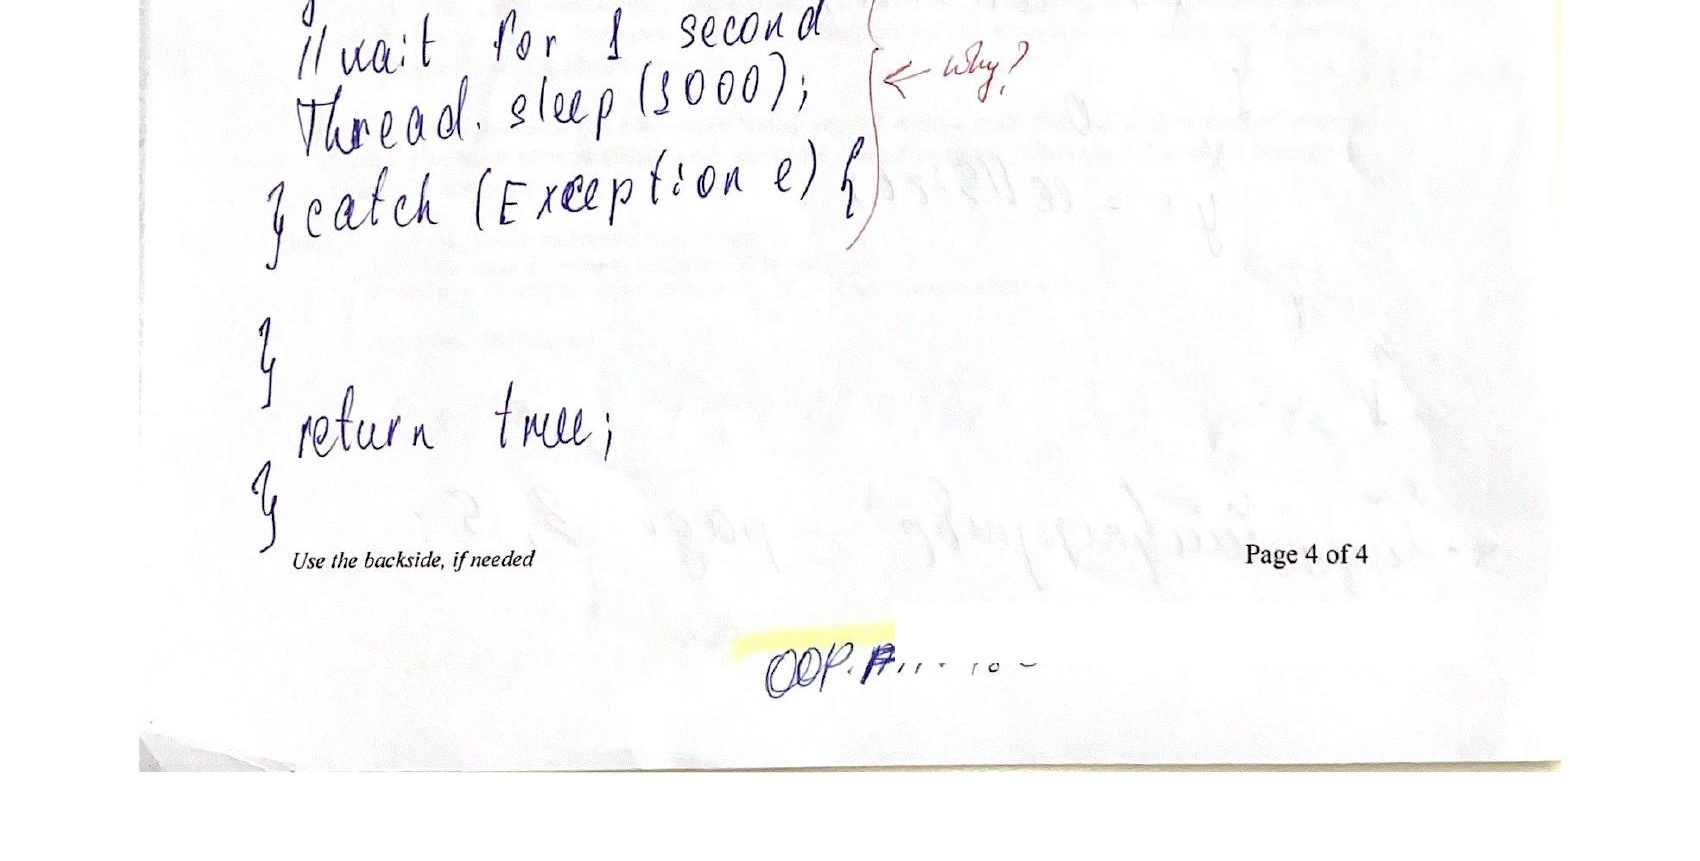 }
// wait for 1 second
Thread.sleep(1000);
← Why?
} catch (Exception e) {
}
return true;
}
Use the backside, if needed
Page 4 of 4
OOP.